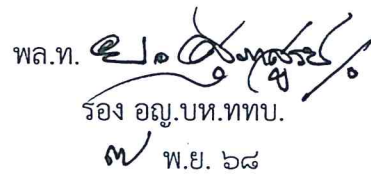 พล.ท.
รอง อญ.บห.ททบ.
๗ พ.ย. ๖๘